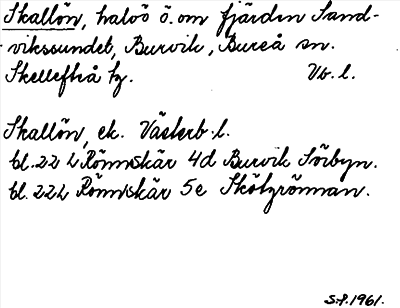 Skallön, halvö ö. om fjärden Sand-
vikssundet, Burvik, Bureå sn.
Skellefteå tg. Vb. l.
Skallön, ek. Västerb. l.
bl. 22 L Rönnskär 4d Burvik Sörbyn.
bl. 22 L Rönnskär 5e Skötgrönnan.
S.P. 1961.